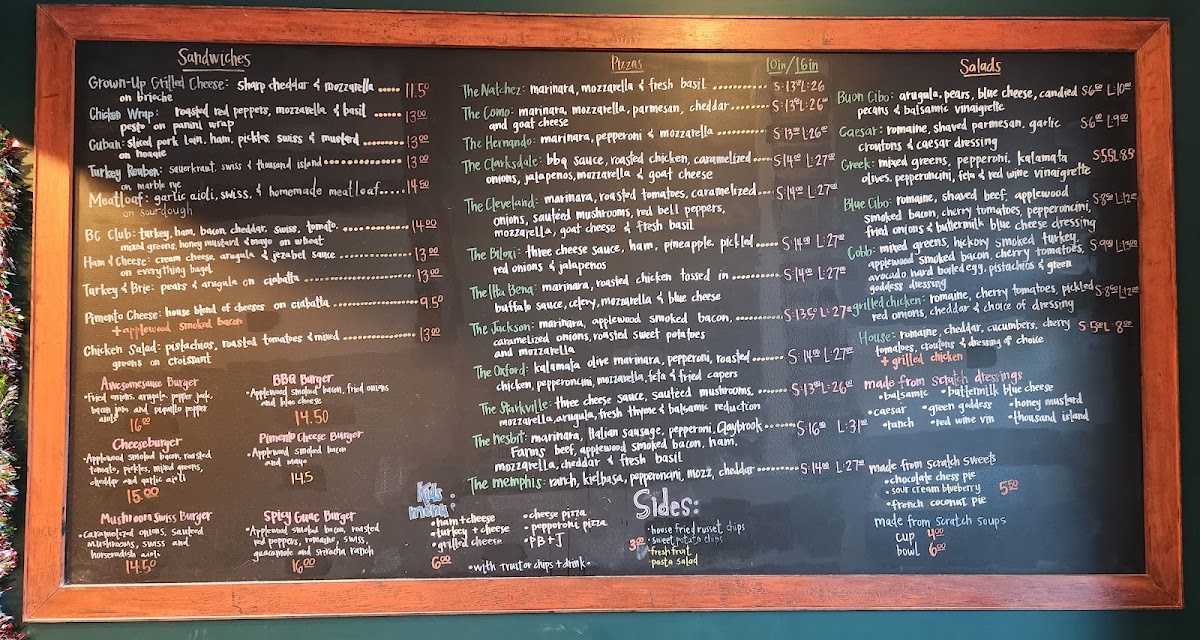 Sandwiches
Grown-Up Grilled Cheese: sharp cheddar & mozzarella ..... 11.50
on brioche
Chicken Wrap: roasted red peppers, mozzarella & basil ..... 13.00
pesto on panini wrap
Cuban: sliced pork loin, ham, pickles, swiss & mustard ........ 13.00
on hoagie
Turkey Reuben: sauerkraut, swiss & thousand island ........ 13.00
on marble rye
Meatloaf: garlic aioli, swiss, & homemade meatloaf..... 14.50
on sourdough
BC Club: turkey, ham, bacon, cheddar, swiss, tomato, ........ 14.00
mixed greens, honey mustard & mayo on wheat
Ham & Cheese: cream cheese, arugula & jezabel sauce ........ 13.00
on everything bagel
Turkey & Brie: pears & arugula on ciabatta ........ 13.00
Pimento Cheese: house blend of cheeses on ciabatta ........ 9.50
+ applewood smoked bacon
Chicken Salad: pistachios, roasted tomatoes & mixed ........ 13.00
greens on croissant
Awesomesauce Burger
•Fried onions, arugula, pepper jack,
bacon jam and piquillo pepper
aioli
16.00
BBQ Burger
•Applewood smoked bacon, fried onions
and blue cheese
14.50
Cheeseburger
•Applewood smoked bacon, roasted
tomato, pickles, mixed greens,
cheddar and garlic aioli
15.00
Pimento Cheese Burger
•Applewood smoked bacon
and mayo
14.5
Mushroom Swiss Burger
•caramelized onions, sautéed
mushrooms, swiss and
horseradish aioli
14.50
Spicy Guac Burger
•Applewood smoked bacon, roasted
red peppers, romaine, swiss,
guacamole and sriracha ranch
16.00
Pizzas 10in/16in
The Natchez: marinara, mozzarella & fresh basil ........ S:13.00 L:26
The Como: marinara, mozzarella, parmesan, cheddar ..... S:13.00 L:26.00
and goat cheese
The Hernando: marinara, pepperoni & mozzarella ........ S:13.00 L:26.00
The Clarksdale: bbq sauce, roasted chicken, caramelized ..... S:14.00 L:27.00
onions, jalapenos, mozzarella & goat cheese
The Cleveland: marinara, roasted tomatoes, caramelized ..... S:14.00 L:27.00
onions, sautéed mushrooms, red bell peppers,
mozzarella, goat cheese & fresh basil
The Biloxi: three cheese sauce, ham, pineapple, pickled ..... S:14.00 L:27.00
red onions & jalapenos
The Itta Bena: marinara, roasted chicken tossed in ........ S:14.00 L:27.00
buffalo sauce, celery, mozzarella & blue cheese
The Jackson: marinara, applewood smoked bacon, ........ S:13.50 L:27.00
caramelized onions, roasted sweet potatoes
and mozzarella
The Oxford: kalamata olive marinara, pepperoni, roasted ..... S:14.00 L:27.00
chicken, pepperoncini, mozzarella, feta & fried capers
The Starkville: three cheese sauce, sautéed mushrooms, ..... S:13.00 L:26.00
mozzarella, arugula, fresh thyme & balsamic reduction
The Nesbit: marinara, Italian sausage, pepperoni, Claybrook ..... S:16.00 L:31.00
Farms beef, applewood smoked bacon, ham,
mozzarella, cheddar & fresh basil
The Memphis: ranch, kielbasa, pepperoncini, mozz, cheddar ........ S:14.00 L:27.00
Kids
menu:
•ham + cheese
•turkey + cheese
•grilled cheese
•cheese pizza
•pepperoni pizza
•PB+J
6.00
•with russet chips + drink•
Sides:
•house fried russet chips
•sweet potato chips
•fresh fruit
•pasta salad
3.00
Salads
Buon Cibo: arugula, pears, blue cheese, candied S6.00 L10.00
pecans & balsamic vinaigrette
Caesar: romaine, shaved parmesan, garlic S6.00 L9.00
croutons & caesar dressing
Greek: mixed greens, pepperoni, kalamata S5.5 L8.5
olives, pepperoncini, feta & red wine vinaigrette
Blue Cibo: romaine, shaved beef, applewood S.8.50 L.12.00
smoked bacon, cherry tomatoes, pepperoncini,
fried onions & buttermilk blue cheese dressing
Cobb: mixed greens, hickory smoked turkey, S.9.00 L.13.00
applewood smoked bacon, cherry tomatoes,
avocado, hard boiled egg, pistachios & green
goddess dressing
grilled chicken: romaine, cherry tomatoes, pickled S.8.50 L.12.00
red onions, cheddar & choice of dressing
House: romaine, cheddar, cucumbers, cherry S 5.00 L 8.00
tomatoes, croutons & dressing of choice
+ grilled chicken
made from scratch dressings
•balsamic •buttermilk blue cheese
•caesar •green goddess •honey mustard
•ranch •red wine vin •thousand island
made from scratch sweets
•chocolate chess pie
•sour cream blueberry
•french coconut pie
5.50
made from scratch soups
cup 4.00
bowl 6.00